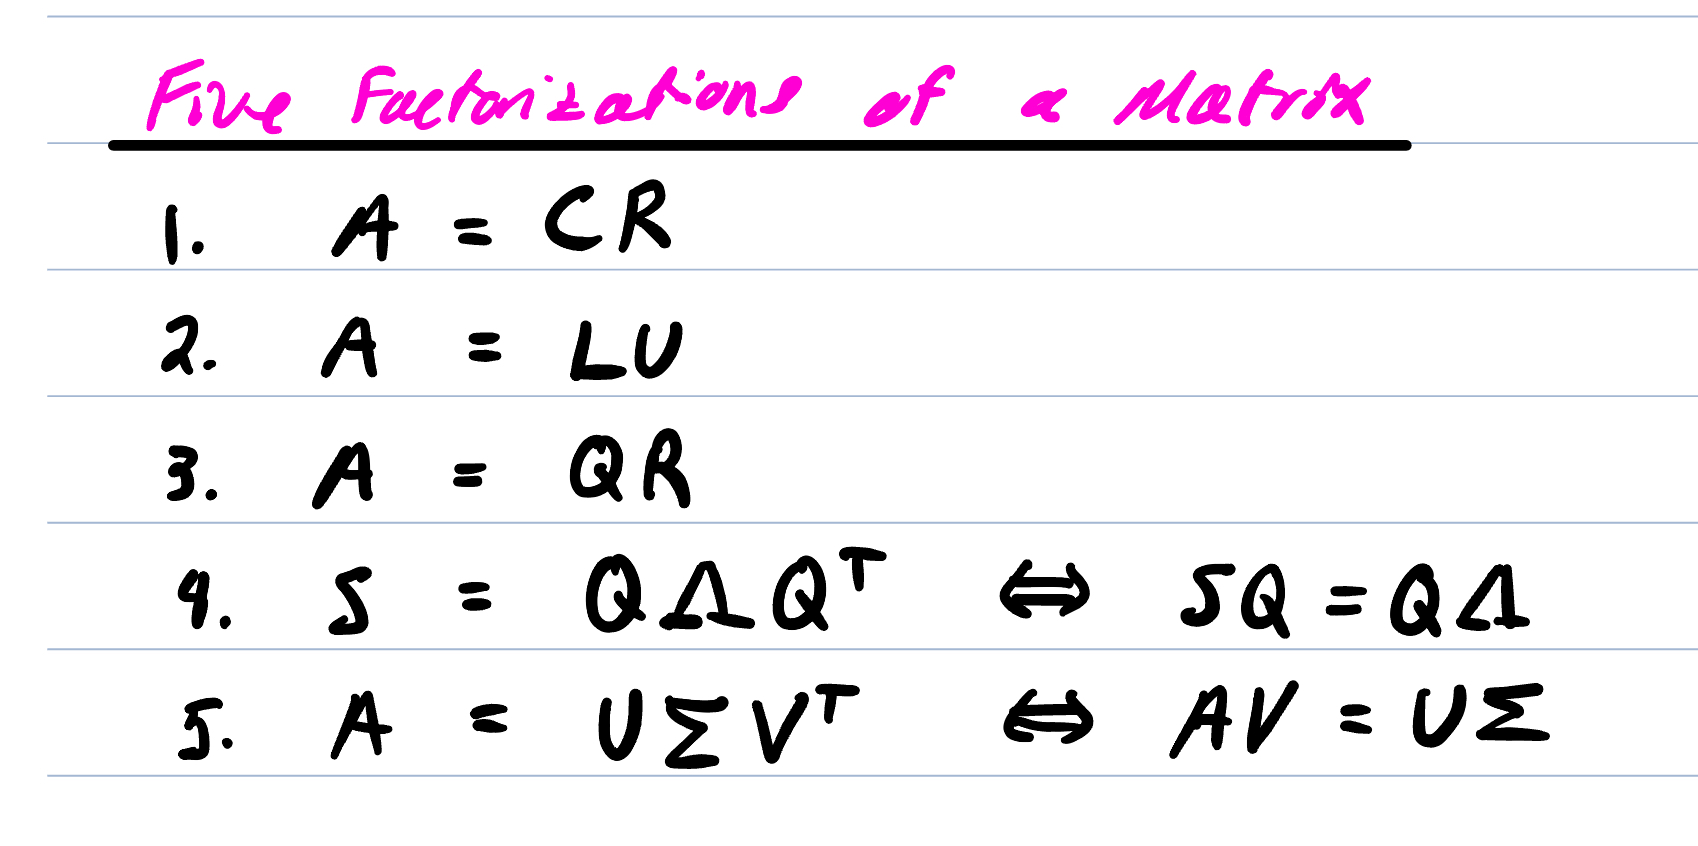 Five Factorizations of a Matrix
1. A = CR
2. A = LU
3. A = QR
4. S = QΛQᵀ ⇔ SQ = QΛ
5. A = UΣVᵀ ⇔ AV = UΣ